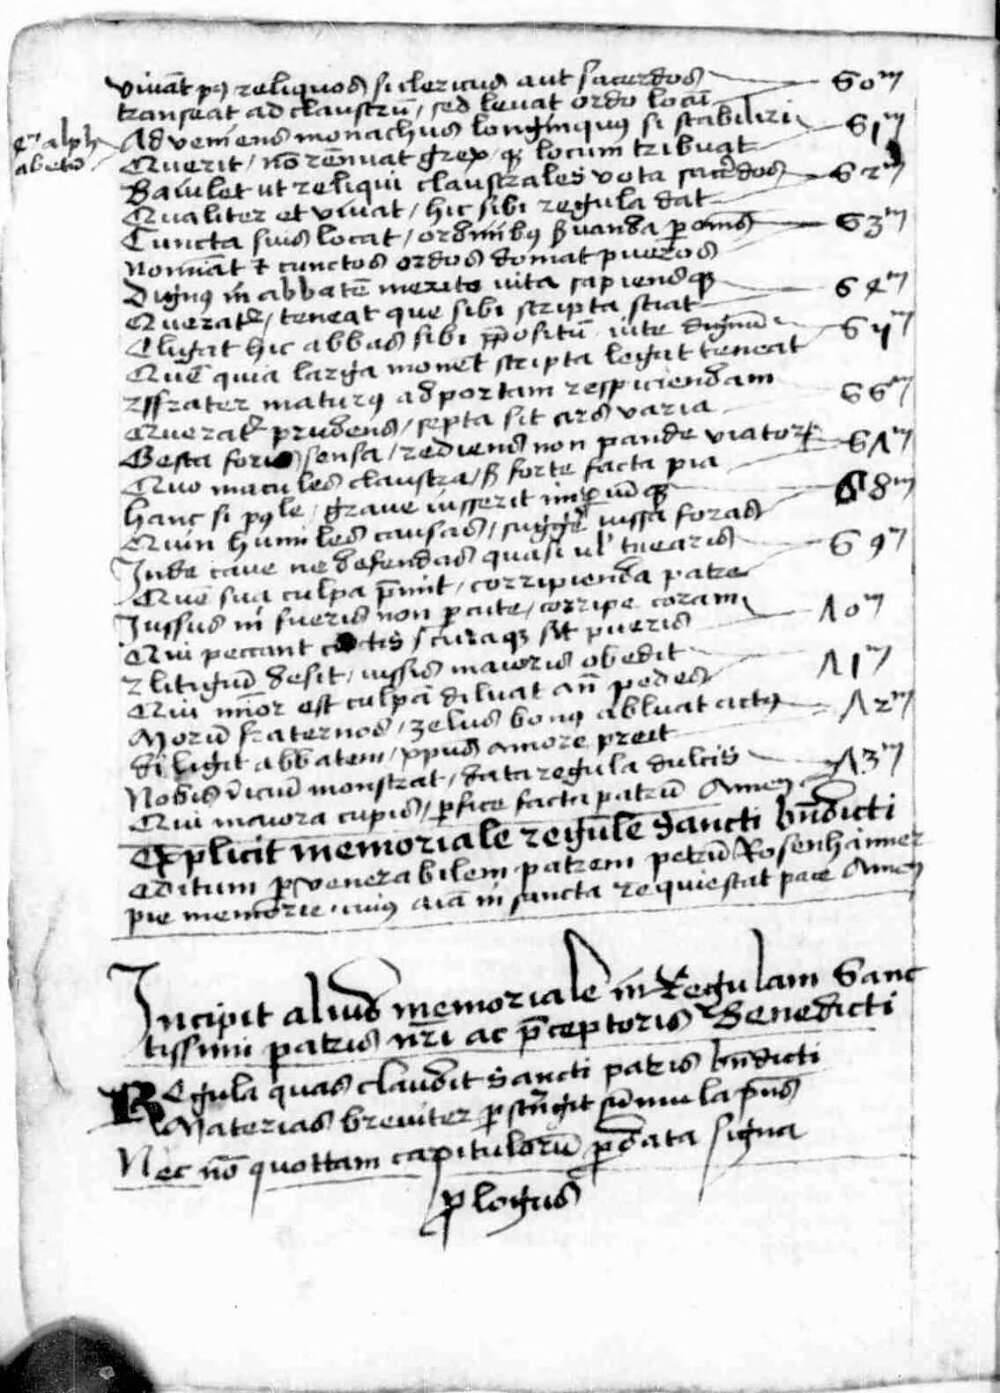 vivāt pꝰ reliquos si clericus aut sacerdos 60m
transeat ad claustrū / sed levat ordo locū
4m alph
abetū
Adveniens monachus longinquꝰ si stabiliri 61m
Querit / nō rēnuat grex / qꝫ locum tribuat
Baiulet ut reliqui claustrales vota sacerdos 62m
Qualiter et vivat / hic sibi regula dat
Cuncta suis locat / ordinibꝰ servanda p omīs 63m
nomināt et cunctos ordos domat pueros
Dignꝰ in abbatē merito vita sapiensqꝫ 64m
Queratur / teneat que sibi scripta sciat
Eligat hic abbas sibi ppositū iute dignū 65m
Quē quia larga monēt scripta legat teneat
frater maturꝰ ad portam respiciendam 66m
Queratur prudens / septa sit ars varia
Gesta foris sensa / rediens non pande viator 67m
Quo macules claustra / forte facta pia
hanc si pꝰ le / grave iusserit qꝫ 68m
Quin humiles causas / suggere iussa foras
Inde cave ne defendas quasi ul' tuearis 69m
Que sua culpa pmit / corripienda patre
Iussus ni fueris non pcute / corripe coram 70m
Qui peccant cūctis / curaqꝫ sit pueris
litigiū desit / iussis maioris obedit 71m
Qui minor est culpā diluat añ pedes
Morū fraternos / zelus bonꝰ abluat actꝰ 72m
diligit abbatem / xppus amore preit
Nobis vicīū monstrat / data regula dulcis 73m
Qui maiora cupis / pfice facta patrū Amen
Explicit memoriale regule Sancti bndicti
editum p venerabilem patrem petrū Rosenhaimer
pie memorie / cuius aīa in sancta requiestat pace Amen
Incipit aliud memoriale in Regulam Sanc
tissimi patris nrī ac pceptoris Benedicti
REgula quas claudit sancti patris bndicti
Materias breviter pstrīgit sūmula pns
Nec nō quottam capitulorū pdata signa
plogus